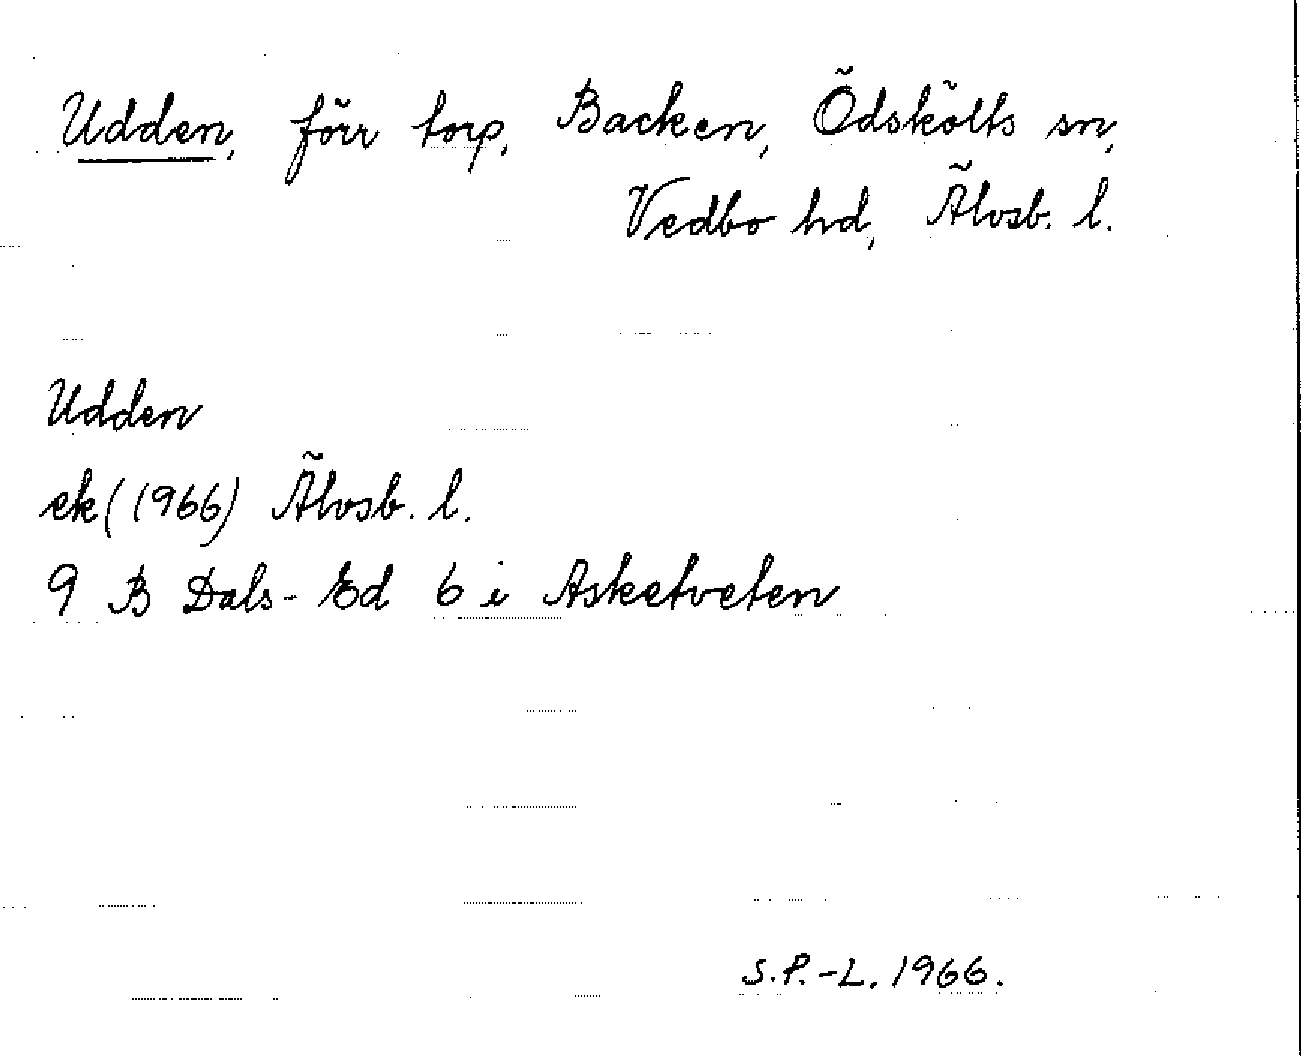 Udden, förr torp, Backen, Ödskölts sn,
Vedbo hd, Älvsb. l.
Udden
ek (1966) Älvsb. l.
9 B Dals-Ed 6 i Asketveten
S.P.-L. 1966.